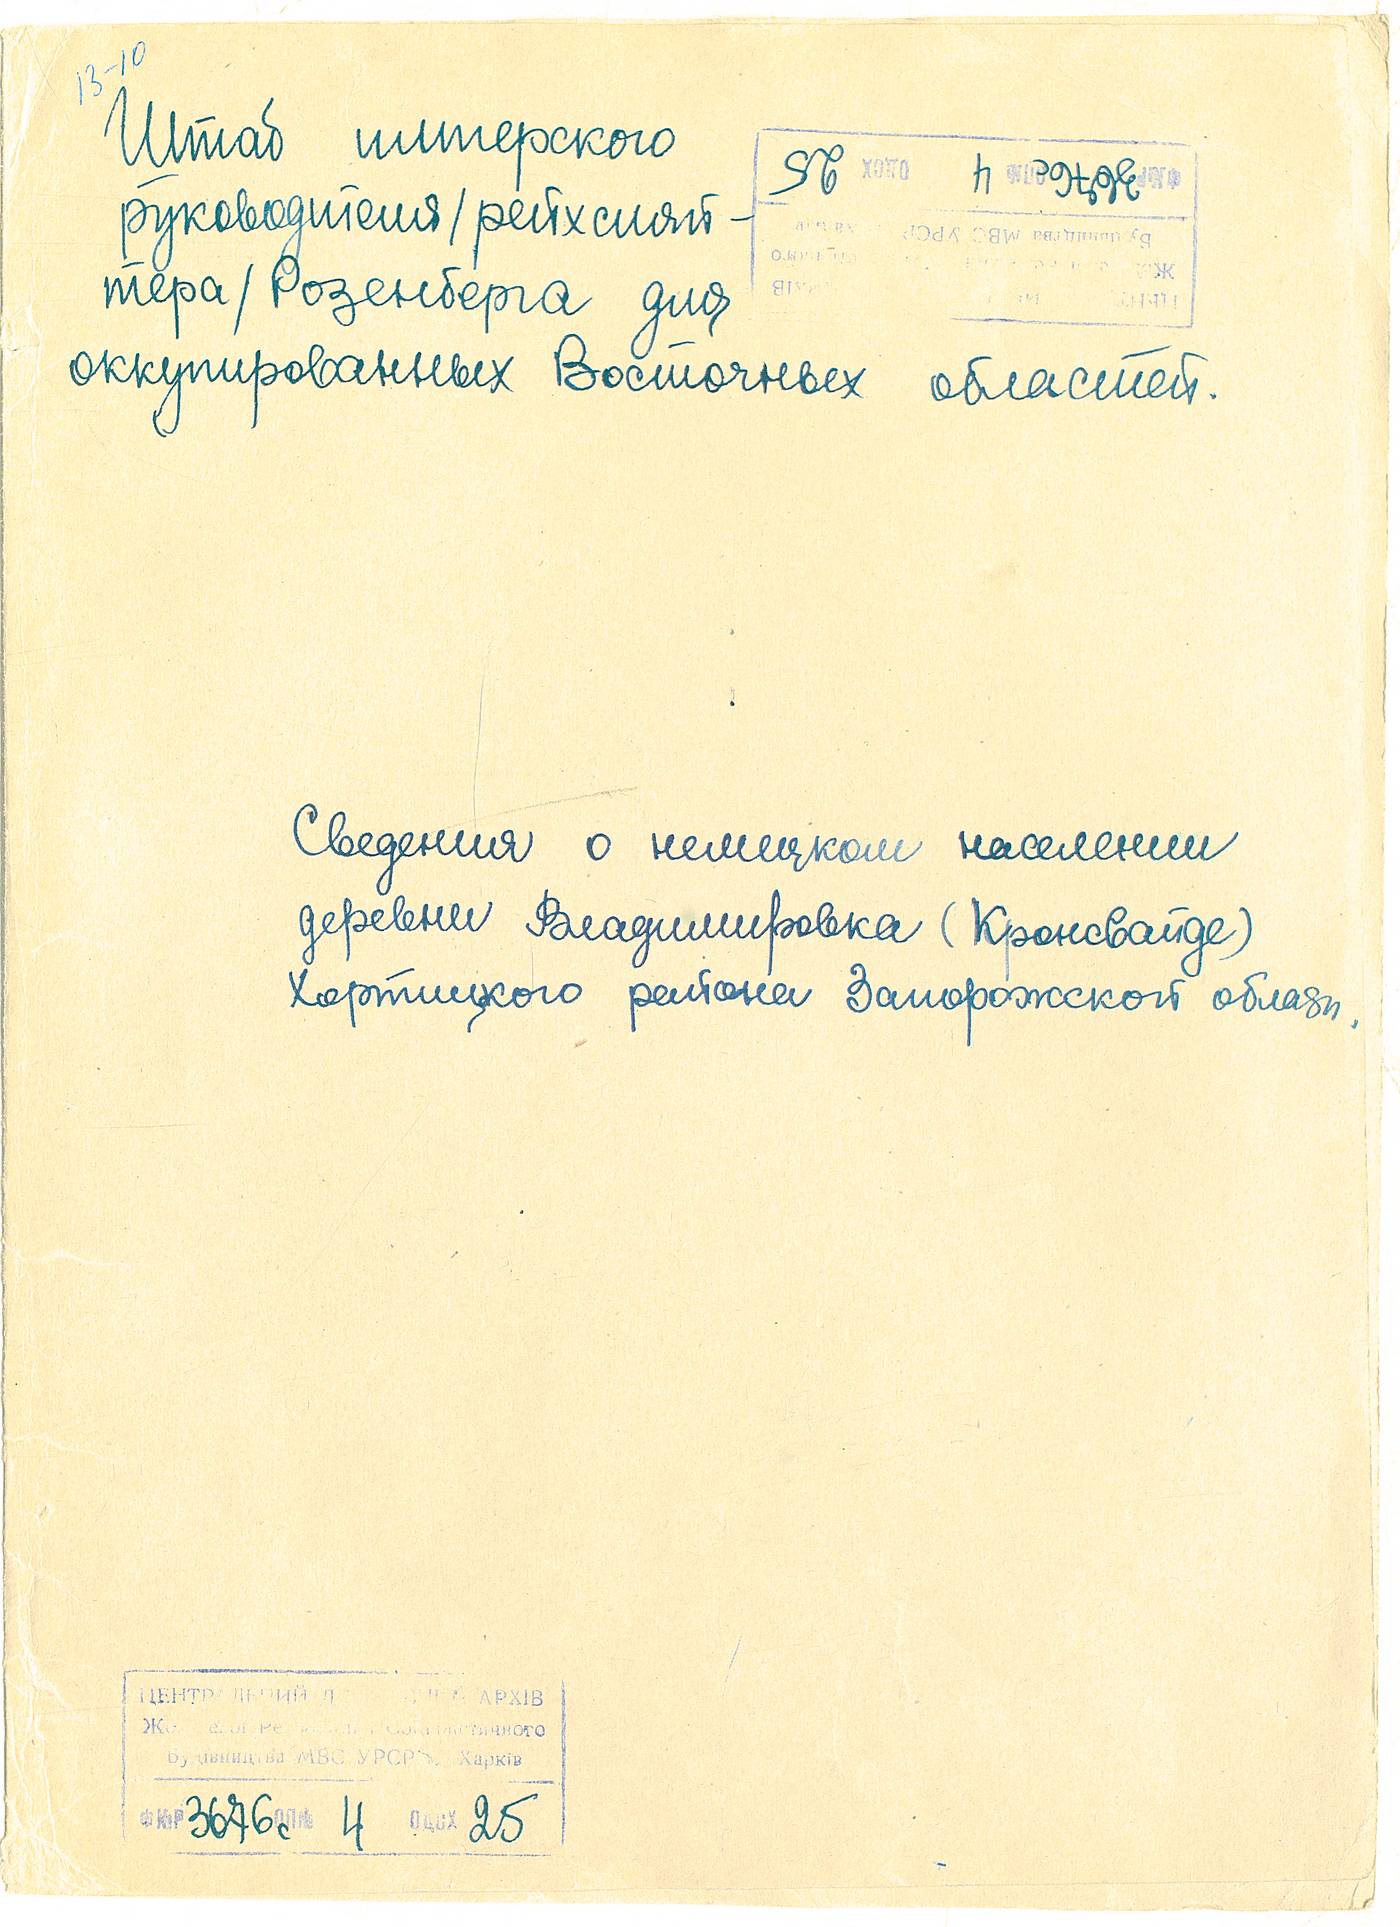 13-10
Штаб имперского
руководителя/рейхсляй-
тера/Розенберга для
оккупированных Восточных областей.
4 25
Будівництва МВС УРСР
Сведения о немецком населении
деревни Владимировка (Кронсвайде)
Хортицкого района Запорожской области.
ЦЕНТРАЛЬНИЙ АРХІВ
Соціалістичного
Будівництва МВС УРСР Харків
3676с 4 ОДСХ 25